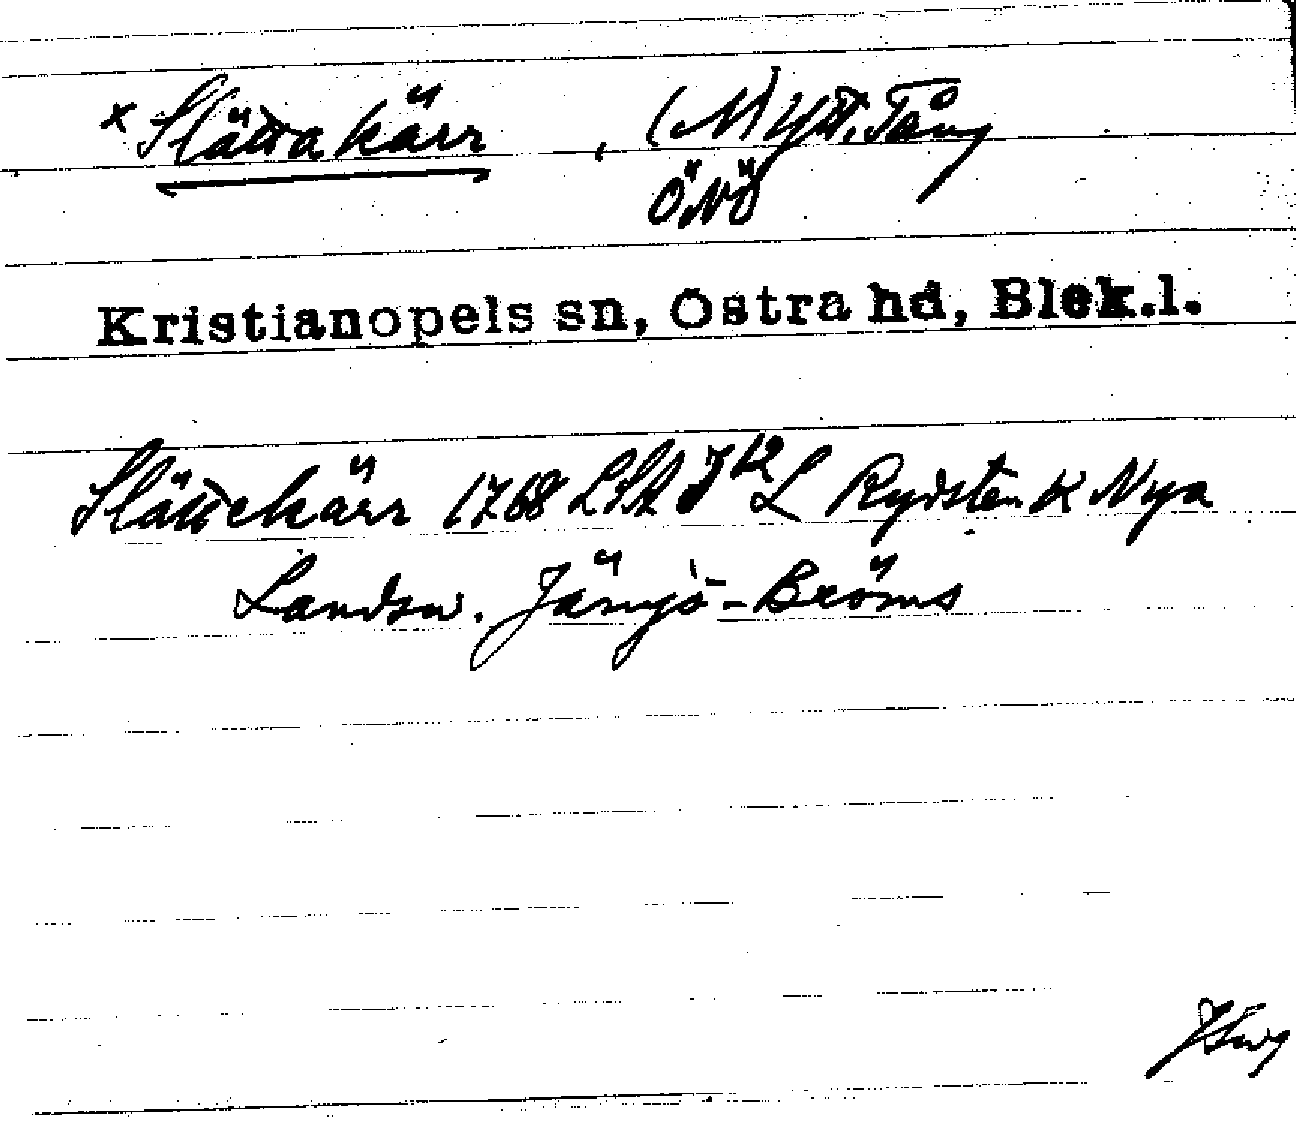 × Slätta kärr , (N) ytt. Tång
ÖNÖ
Kristianopels sn, Östra hd, Blek.l.
Slättekärr 1768 LSA J12 L Rydsten K Nya
Landsv. Jämjö - Bröms